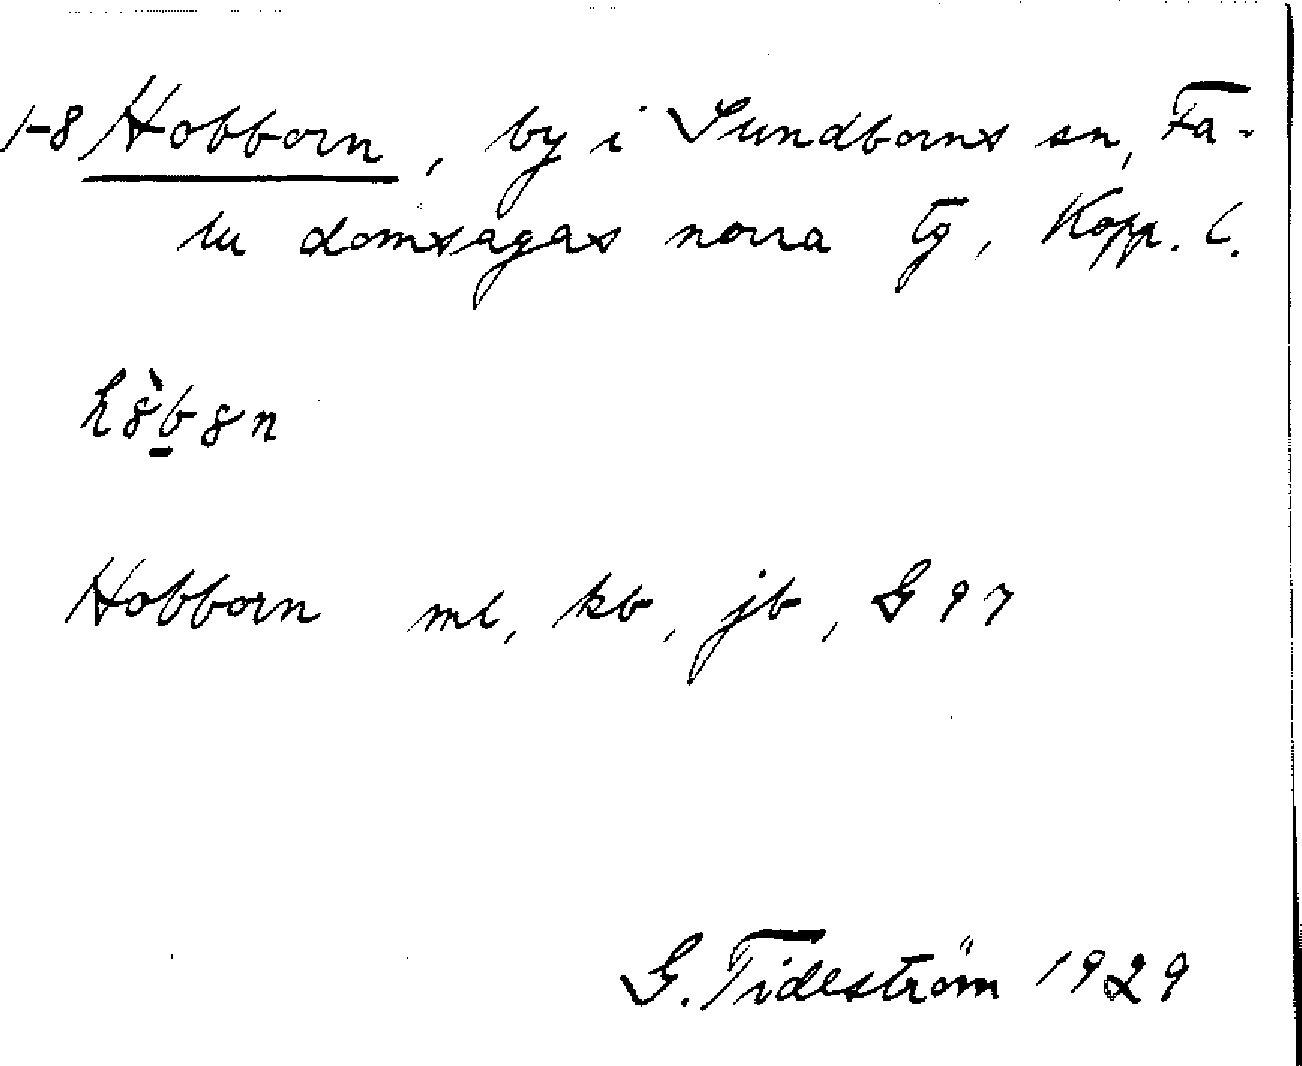 1-8 Hobborn, by i Sundborns sn, Fa-
lu domsagas norra tg, Kopp. l.
Hobborn ml, kb, jb, G 97
G. Tideström 1929